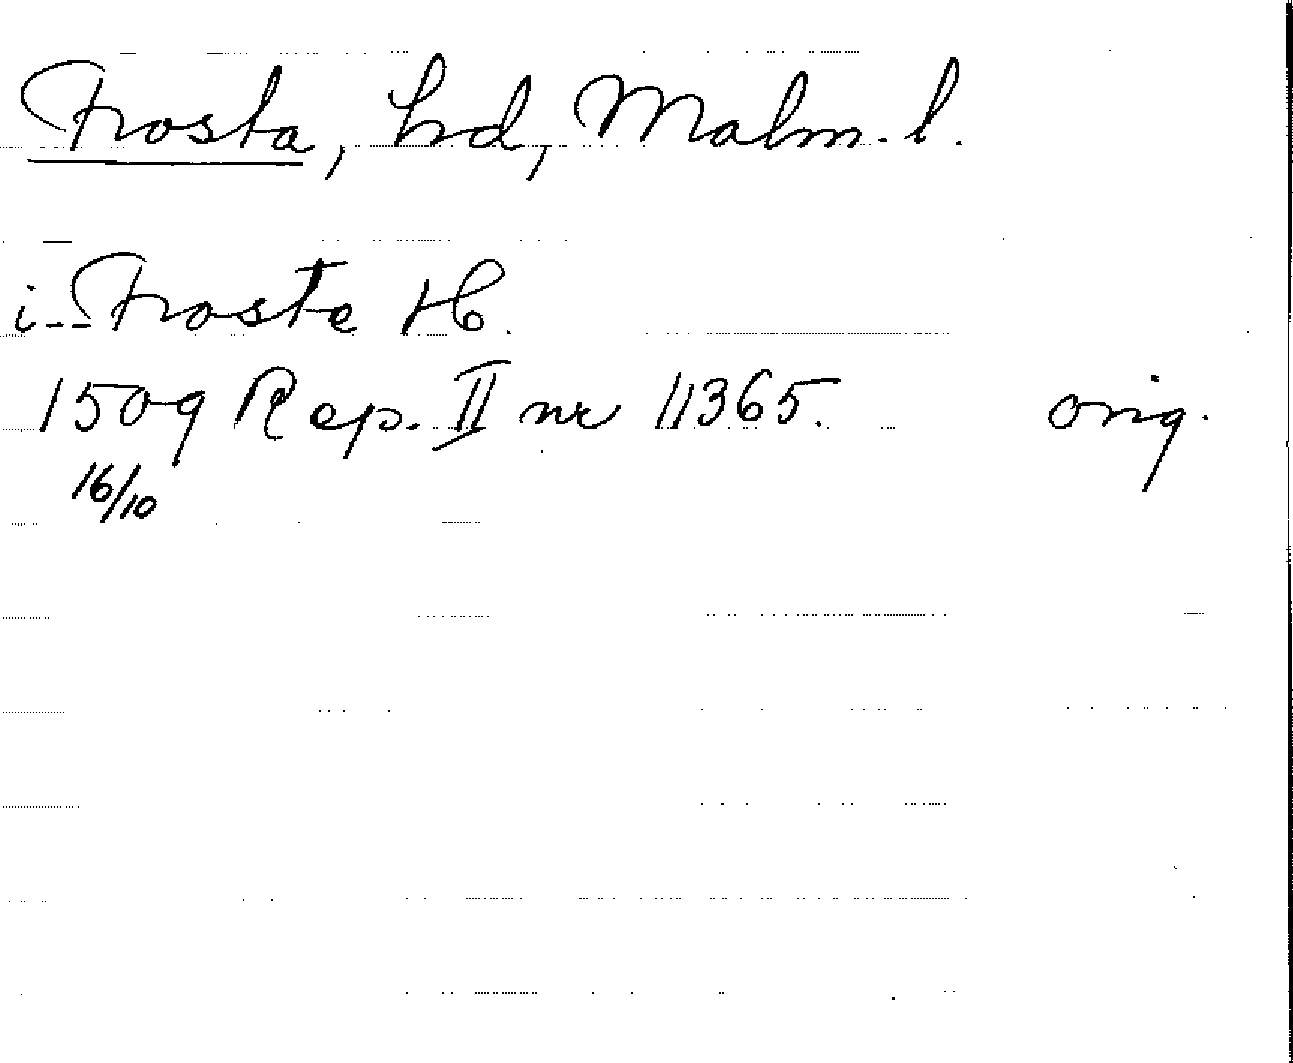 Frosta, hd, Malm. l.
i -- Froste H.
1509 Rep. II nr 11365. orig.
16/10